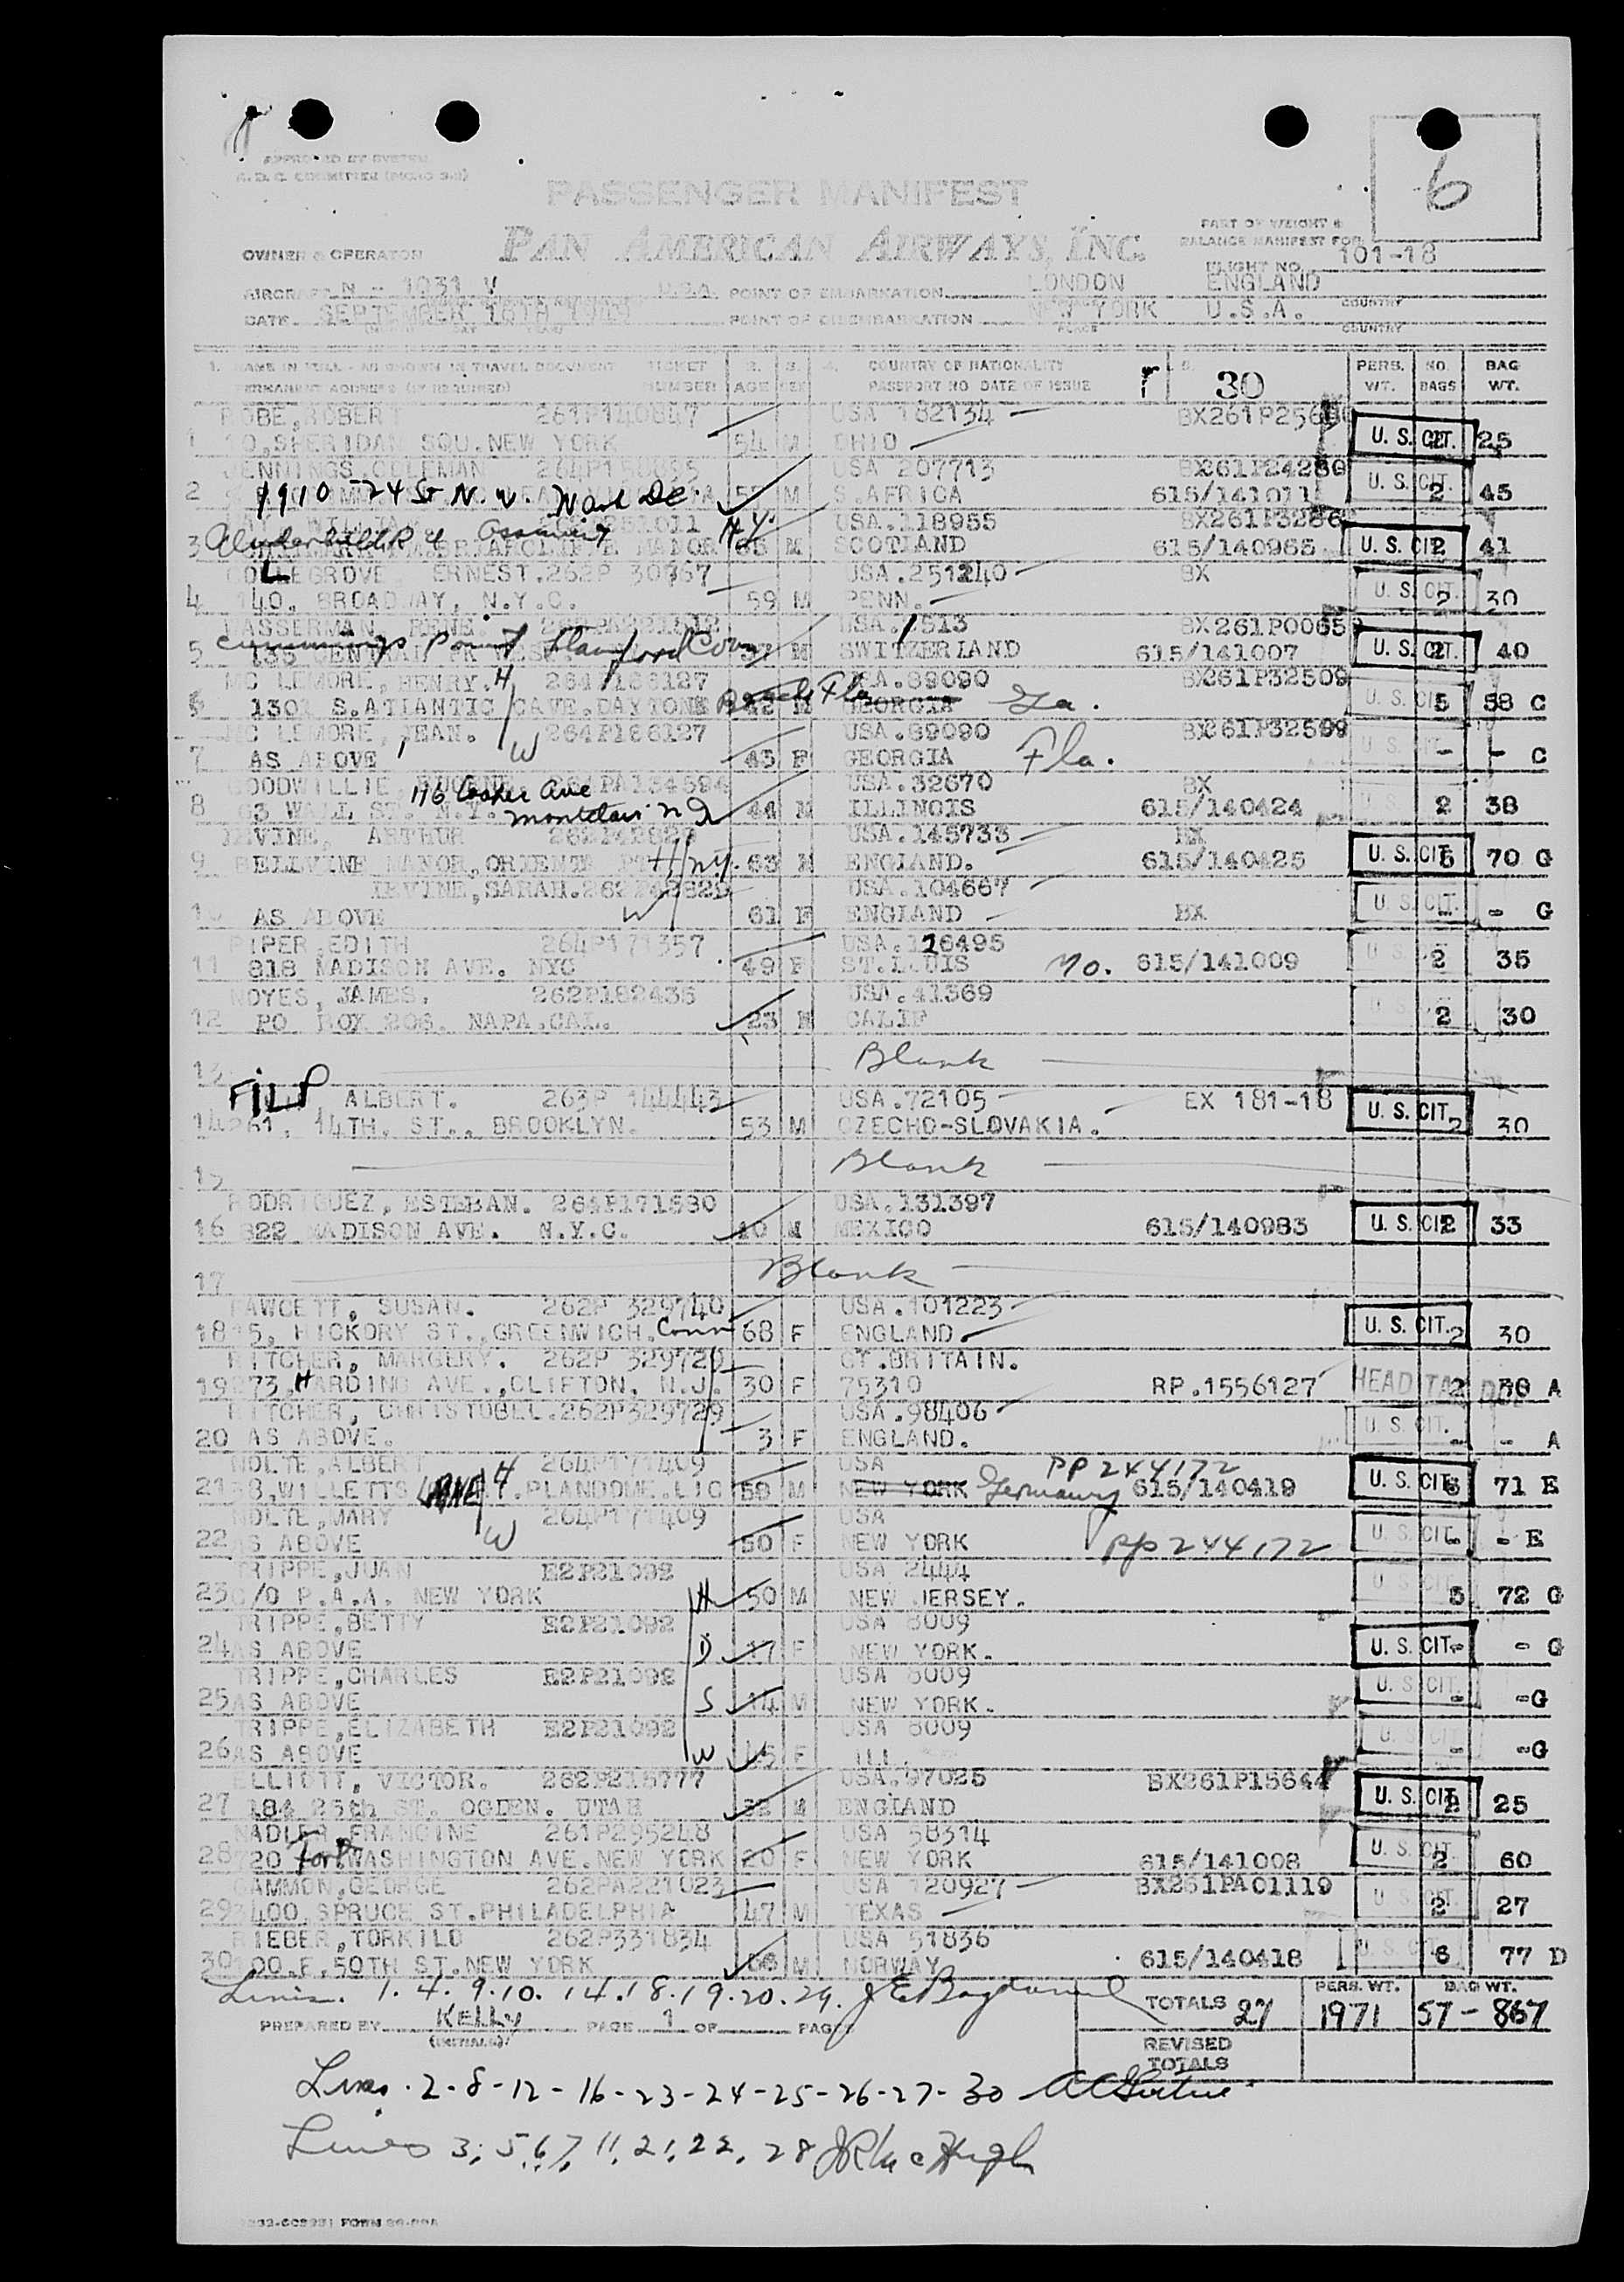 APPROVED BY SYSTEM
6
PASSENGER MANIFEST
PART OF WEIGHT &
BALANCE MANIFEST FOR
OWNER & OPERATOR PAN AMERICAN AIRWAYS, INC.
FLIGHT NO. 101-18
AIRCRAFT N - 1031 V U.S.A. POINT OF EMBARKATION LONDON ENGLAND
COUNTRY
DATE SEPTEMBER 16TH 1949 POINT OF DISEMBARKATION NEW YORK U.S.A.
PLACE COUNTRY
1. NAME IN FULL - AS SHOWN IN TRAVEL DOCUMENT TICKET 2. 3. 4. COUNTRY OF NATIONALITY 5. 30 PERS. NO. BAG
PERMANENT ADDRESS (IF REQUIRED) NUMBER AGE SEX PASSPORT NO DATE OF ISSUE WT. BAGS WT.
ROBE, ROBERT 261P140847 USA 182134
1 SHERIDAN SQU. NEW YORK 54 M OHIO U. S. CIT. 25
JENNINGS, COLEMAN USA 207713
2 1910 - 24 St N. W. Wash DC. M S.AFRICA 615/141011 U. S. CIT. 2 45
USA.118955
3 Ossining N.Y. BRIARCLIFFE MANOR M SCOTLAND 615/140965 U. S. CIT. 2 41
COLLEGROVE, ERNEST. 262P 30767 BX
4 140, BROADWAY, N.Y.C. 59 M PENN. U. S. CIT. 2 30
WASSERMAN, RENE.
5 Cummings Point Stamford Conn M SWITZERLAND 615/141007 U. S. CIT. 2 40
MC LEMORE, HENRY. H 264P186127 USA.89090 BX261P32509
6 1301 S.ATLANTIC AVE. DAYTONA Beach Fla 42 M GEORGIA Ga. U. S. CIT. 5 58 C
MC LEMORE, JEAN. W 264P186127 USA.89090 BX261P32509
7 AS ABOVE 43 F GEORGIA Fla. - - C
GOODWILLIE, EUGENE USA.32670 BX
8 63 WALL ST. N.Y. 116 Cooper Ave Montclair N J 44 M ILLINOIS 615/140424 2 38
IRVINE, ARTHUR USA.145733 BX
9 BELLVINE MANOR, ORIENTA PT H N.Y. 63 M ENGLAND. 615/140425 U. S. CIT. 6 70 G
IRVINE, SARAH. USA.104667
10 AS ABOVE W 61 F ENGLAND BX U. S. CIT. - - G
PIPER, EDITH 264P171357 USA.126495
11 818 MADISON AVE. NYC 49 F ST.LOUIS Mo. 615/141009 2 35
NOYES, JAMES. 262P182435 USA.41369
12 PO BOX 206. NAPA.CAL. 23 M CALIF 2 30
13 Blank
FILP ALBERT. 263P 144443 USA.72105 EX 181-18
14 261, 14TH. ST., BROOKLYN. 53 M CZECHO-SLOVAKIA. U. S. CIT. 2 30
15 Blank
RODRIGUEZ, ESTEBAN. 264P171580 USA.131397
16 822 MADISON AVE. N.Y.C. 40 M MEXICO 615/140983 U. S. CIT. 2 33
17 Blank
FAWCETT, SUSAN. 262P 329740 USA.101223
18 15, HICKORY ST., GREENWICH. Conn 68 F ENGLAND. U. S. CIT. 2 30
PITCHER, MARGERY. 262P 329729 GT.BRITAIN.
19 273, HARDING AVE., CLIFTON, N.J. 30 F 75310 RP.1556127 HEAD TAX DUE 2 30 A
PITCHER, CHRISTOBEL. 262P329729 USA.98406
20 AS ABOVE. 3 F ENGLAND. U. S. CIT. - - A
NOLTE, ALBERT H 264P171409 USA PP 244172
21 38, WILLETTS LANE PLANDOME. 59 M NEW YORK Germany 615/140419 U. S. CIT. 6 71 E
NOLTE, MARY W 264P171409 USA
22 AS ABOVE 50 F NEW YORK PP 244172 U. S. CIT. - - E
TRIPPE, JUAN E2P21092 USA 2444
23 C/O P.A.A. NEW YORK H 50 M NEW JERSEY. 5 72 G
TRIPPE, BETTY E2P21092 USA 6009
24 AS ABOVE D 17 F NEW YORK. U. S. CIT. - - G
TRIPPE, CHARLES E2P21092 USA 6009
25 AS ABOVE S 14 M NEW YORK. U. S. CIT. - -G
TRIPPE, ELIZABETH E2P21092 USA 6009
26 AS ABOVE W 45 F ILL. U. S. CIT. - -G
ELLIOTT, VICTOR. 262P215777 USA.97025 BX261P15644
27 184 25th ST. OGDEN. UTAH 32 M ENGLAND U. S. CIT. 2 25
NADLER, FRANCINE 261P295248 USA 58314
28 720 Fort WASHINGTON AVE. NEW YORK 20 F NEW YORK 615/141008 U. S. CIT. 2 60
GAMMON, GEORGE 262PA221023 USA 120927 BX261PA01119
29 3400 SPRUCE ST. PHILADELPHIA 47 M TEXAS U. S. CIT. 2 27
RIEBER, TORKILD 262P331834 USA 51836
30 100.E.50TH ST. NEW YORK M NORWAY 615/140418 U. S. CIT. 6 77 D
Lines. 1. 4. 9. 10. 14. 18. 19. 20. 29.
TOTALS 27 PERS. WT. 1971 BAG WT. 57 - 867
PREPARED BY KELLY PAGE 1 OF PAGES
(INITIALS)
REVISED
TOTALS
Lines. 2-8-12-16-23-24-25-26-27-30
Lines 3, 5, 6, 7, 11, 21, 22, 28 J R McHugh